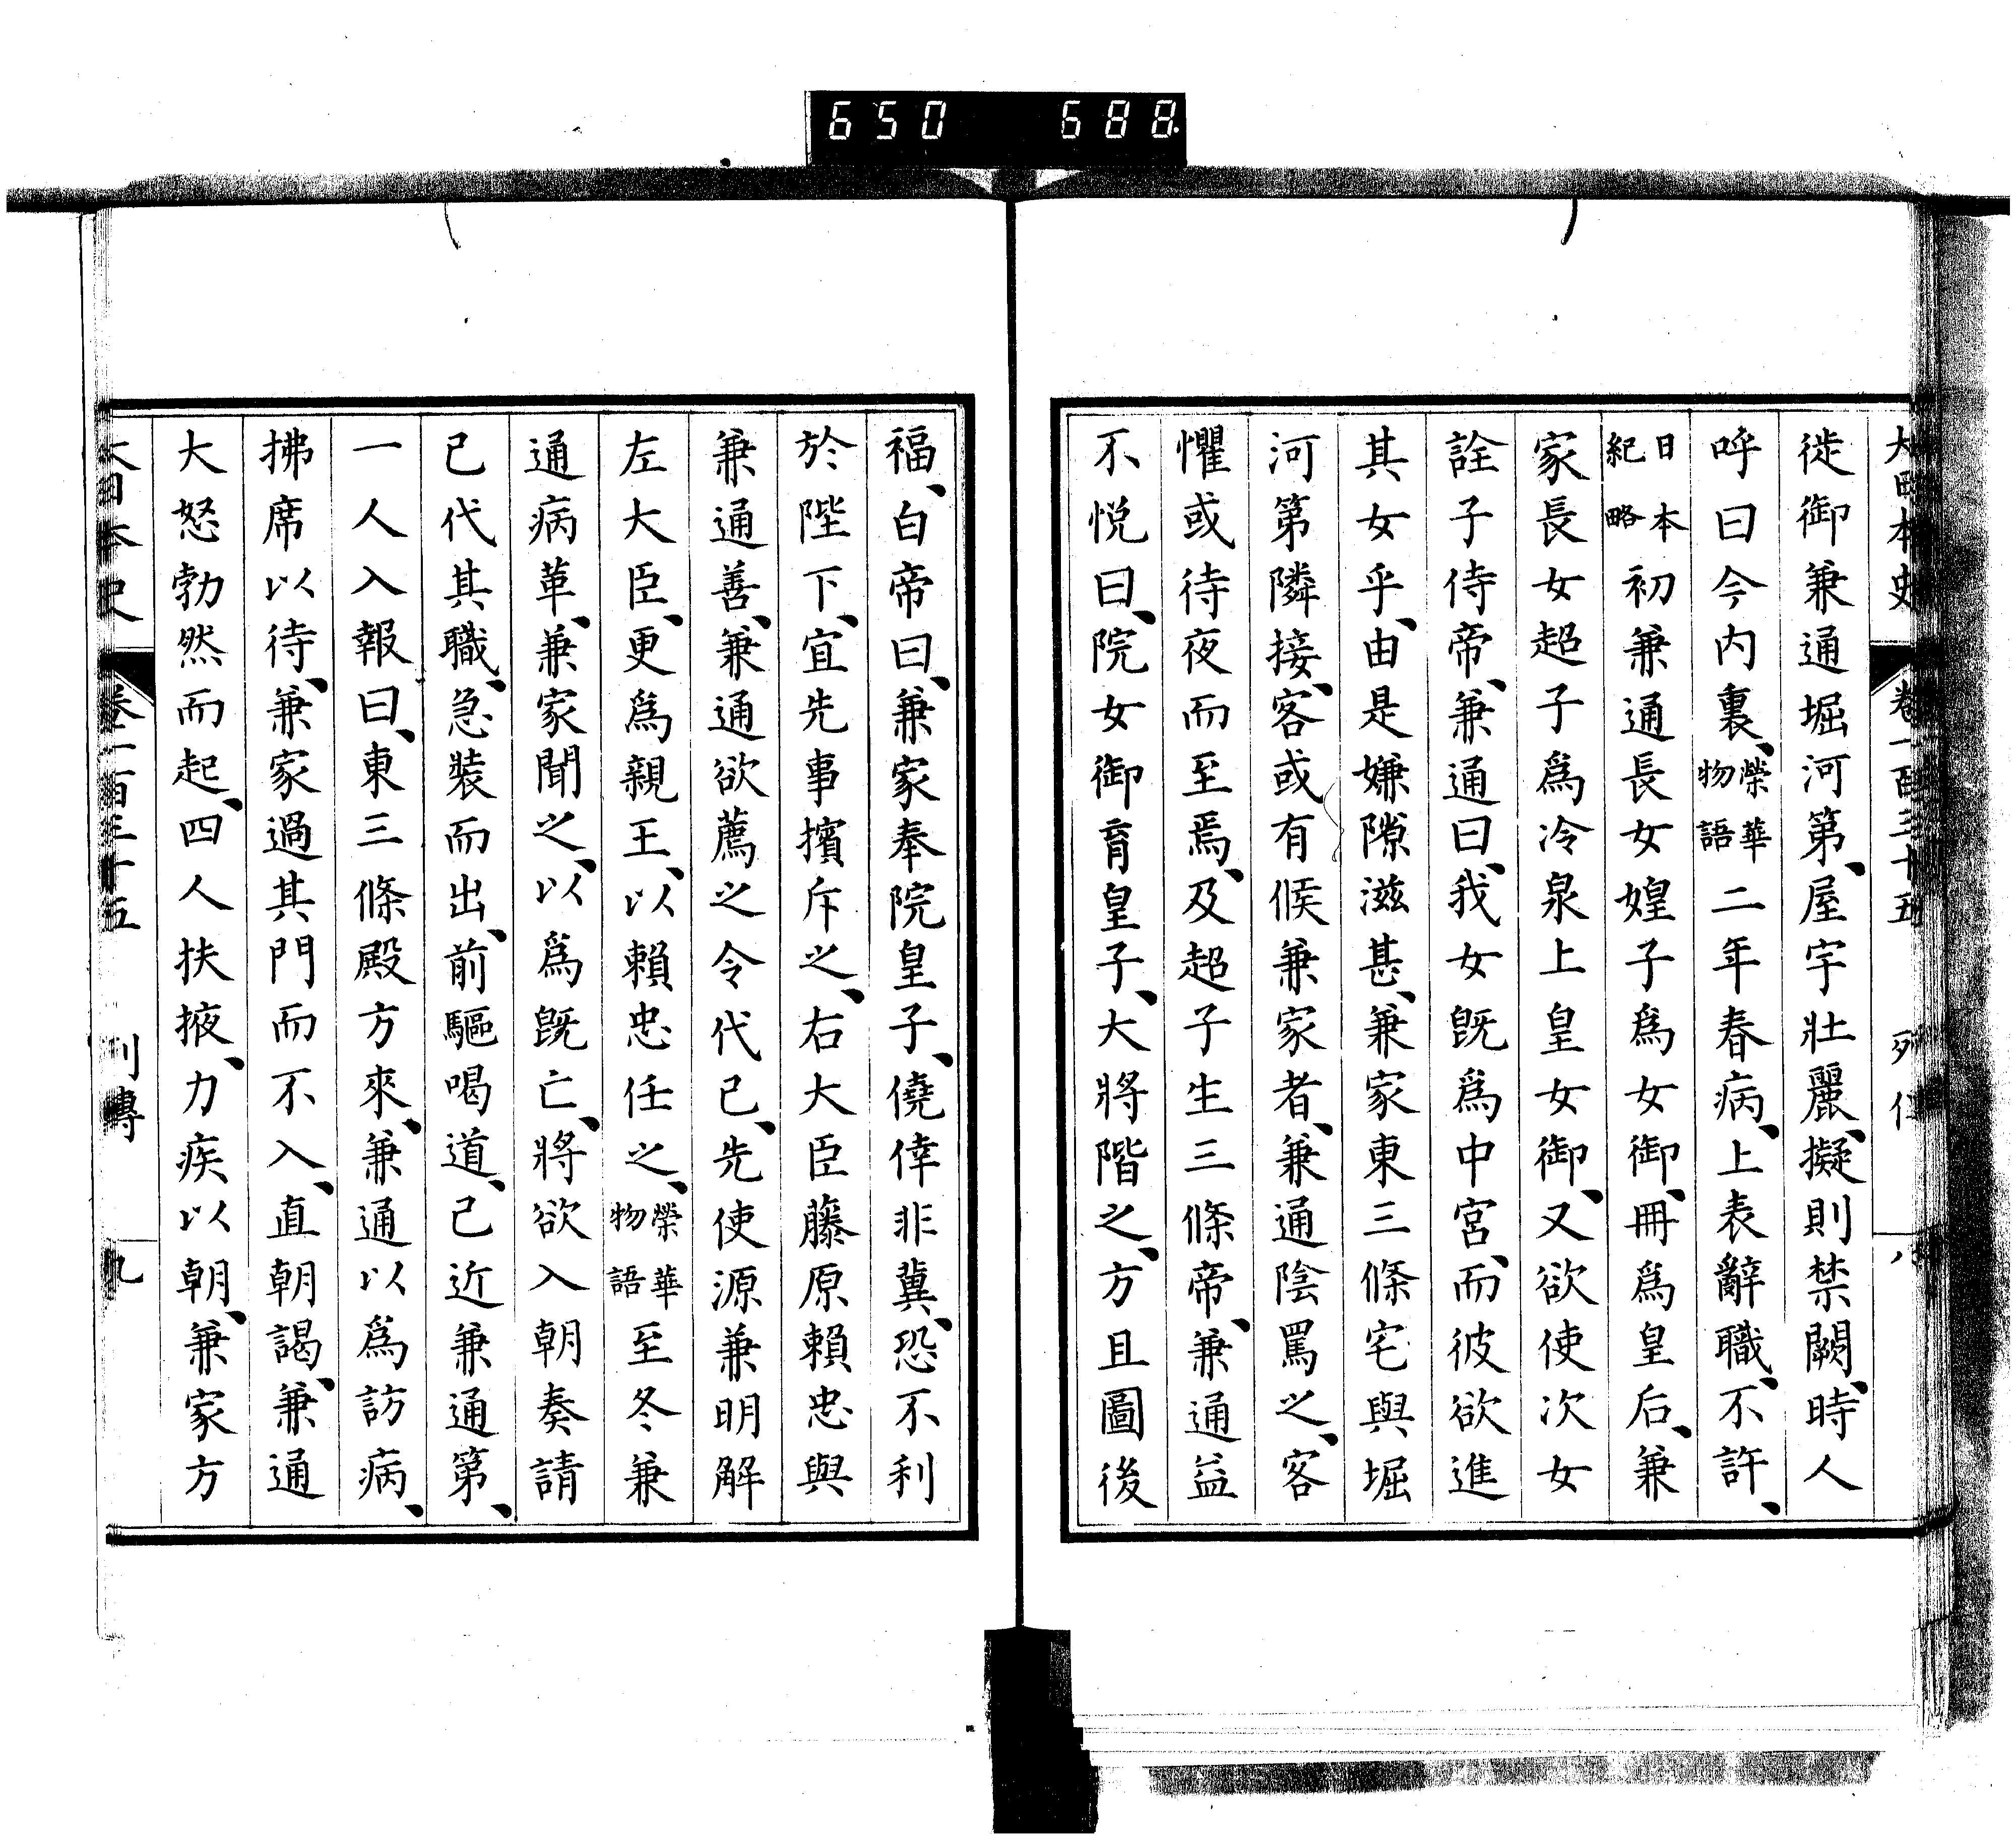 650 688
大日本史 卷一百三十五 列傳 八
徙御兼通堀河第、屋宇壯麗、擬則禁闕、時人
呼曰今內裏、榮華物語二年春病、上表辭職、不許、
日本紀略初兼通長女媓子爲女御、冊爲皇后、兼
家長女超子爲冷泉上皇女御、又欲使次女
詮子侍帝、兼通曰、我女旣爲中宮、而彼欲進
其女乎、由是嫌隙滋甚、兼家東三條宅與堀
河第隣接、客或有候兼家者、兼通陰罵之、客
懼或待夜而至焉、及超子生三條帝、兼通益
不悅曰、院女御育皇子、大將階之、方且圖後
福、白帝曰、兼家奉院皇子、僥倖非冀、恐不利
於陛下、宜先事擯斥之、右大臣藤原賴忠與
兼通善、兼通欲薦之令代己、先使源兼明解
左大臣、更爲親王、以賴忠任之、榮華物語至冬兼
通病革、兼家聞之、以爲旣亡、將欲入朝奏請
己代其職、急裝而出、前驅喝道、已近兼通第、
一人入報曰、東三條殿方來、兼通以爲訪病、
拂席以待、兼家過其門而不入、直朝謁、兼通
大怒勃然而起、四人扶掖、力疾以朝、兼家方
大日本史 卷一百三十五 列傳 九